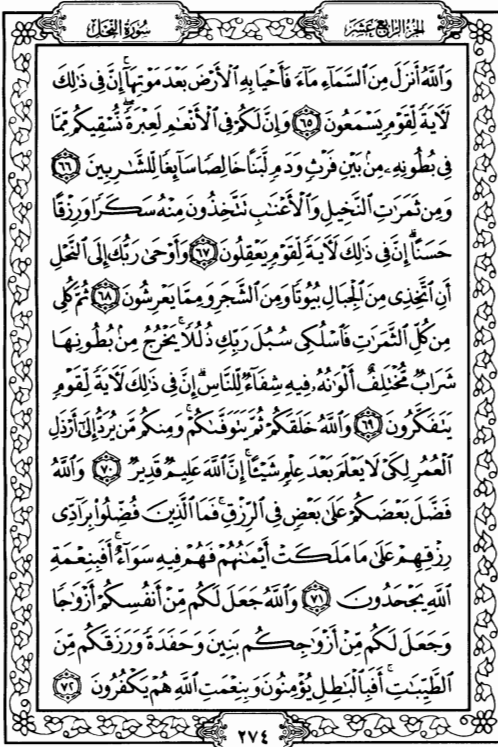 سورة النحل
الجزء الرابع عشر
وَاللَّهُ أَنزَلَ مِنَ السَّمَاءِ مَاءً فَأَحْيَا بِهِ الْأَرْضَ بَعْدَ مَوْتِهَا ۚ إِنَّ فِي ذَٰلِكَ
لَآيَةً لِّقَوْمٍ يَسْمَعُونَ ٦٥ وَإِنَّ لَكُمْ فِي الْأَنْعَامِ لَعِبْرَةً ۖ نُّسْقِيكُم مِّمَّا
فِي بُطُونِهِ مِن بَيْنِ فَرْثٍ وَدَمٍ لَّبَنًا خَالِصًا سَائِغًا لِّلشَّارِبِينَ ٦٦
وَمِن ثَمَرَاتِ النَّخِيلِ وَالْأَعْنَابِ تَتَّخِذُونَ مِنْهُ سَكَرًا وَرِزْقًا
حَسَنًا ۗ إِنَّ فِي ذَٰلِكَ لَآيَةً لِّقَوْمٍ يَعْقِلُونَ ٦٧ وَأَوْحَىٰ رَبُّكَ إِلَى النَّحْلِ
أَنِ اتَّخِذِي مِنَ الْجِبَالِ بُيُوتًا وَمِنَ الشَّجَرِ وَمِمَّا يَعْرِشُونَ ٦٨ ثُمَّ كُلِي
مِن كُلِّ الثَّمَرَاتِ فَاسْلُكِي سُبُلَ رَبِّكِ ذُلُلًا ۚ يَخْرُجُ مِن بُطُونِهَا
شَرَابٌ مُّخْتَلِفٌ أَلْوَانُهُ فِيهِ شِفَاءٌ لِّلنَّاسِ ۗ إِنَّ فِي ذَٰلِكَ لَآيَةً لِّقَوْمٍ
يَتَفَكَّرُونَ ٦٩ وَاللَّهُ خَلَقَكُمْ ثُمَّ يَتَوَفَّاكُمْ ۚ وَمِنكُم مَّن يُرَدُّ إِلَىٰ أَرْذَلِ
الْعُمُرِ لِكَيْ لَا يَعْلَمَ بَعْدَ عِلْمٍ شَيْئًا ۚ إِنَّ اللَّهَ عَلِيمٌ قَدِيرٌ ٧٠ وَاللَّهُ
فَضَّلَ بَعْضَكُمْ عَلَىٰ بَعْضٍ فِي الرِّزْقِ ۚ فَمَا الَّذِينَ فُضِّلُوا بِرَادِّي
رِزْقِهِمْ عَلَىٰ مَا مَلَكَتْ أَيْمَانُهُمْ فَهُمْ فِيهِ سَوَاءٌ ۚ أَفَبِنِعْمَةِ
اللَّهِ يَجْحَدُونَ ٧١ وَاللَّهُ جَعَلَ لَكُم مِّنْ أَنفُسِكُمْ أَزْوَاجًا
وَجَعَلَ لَكُم مِّنْ أَزْوَاجِكُم بَنِينَ وَحَفَدَةً وَرَزَقَكُم مِّنَ
الطَّيِّبَاتِ ۚ أَفَبِالْبَاطِلِ يُؤْمِنُونَ وَبِنِعْمَتِ اللَّهِ هُمْ يَكْفُرُونَ ٧٢
٢٧٤